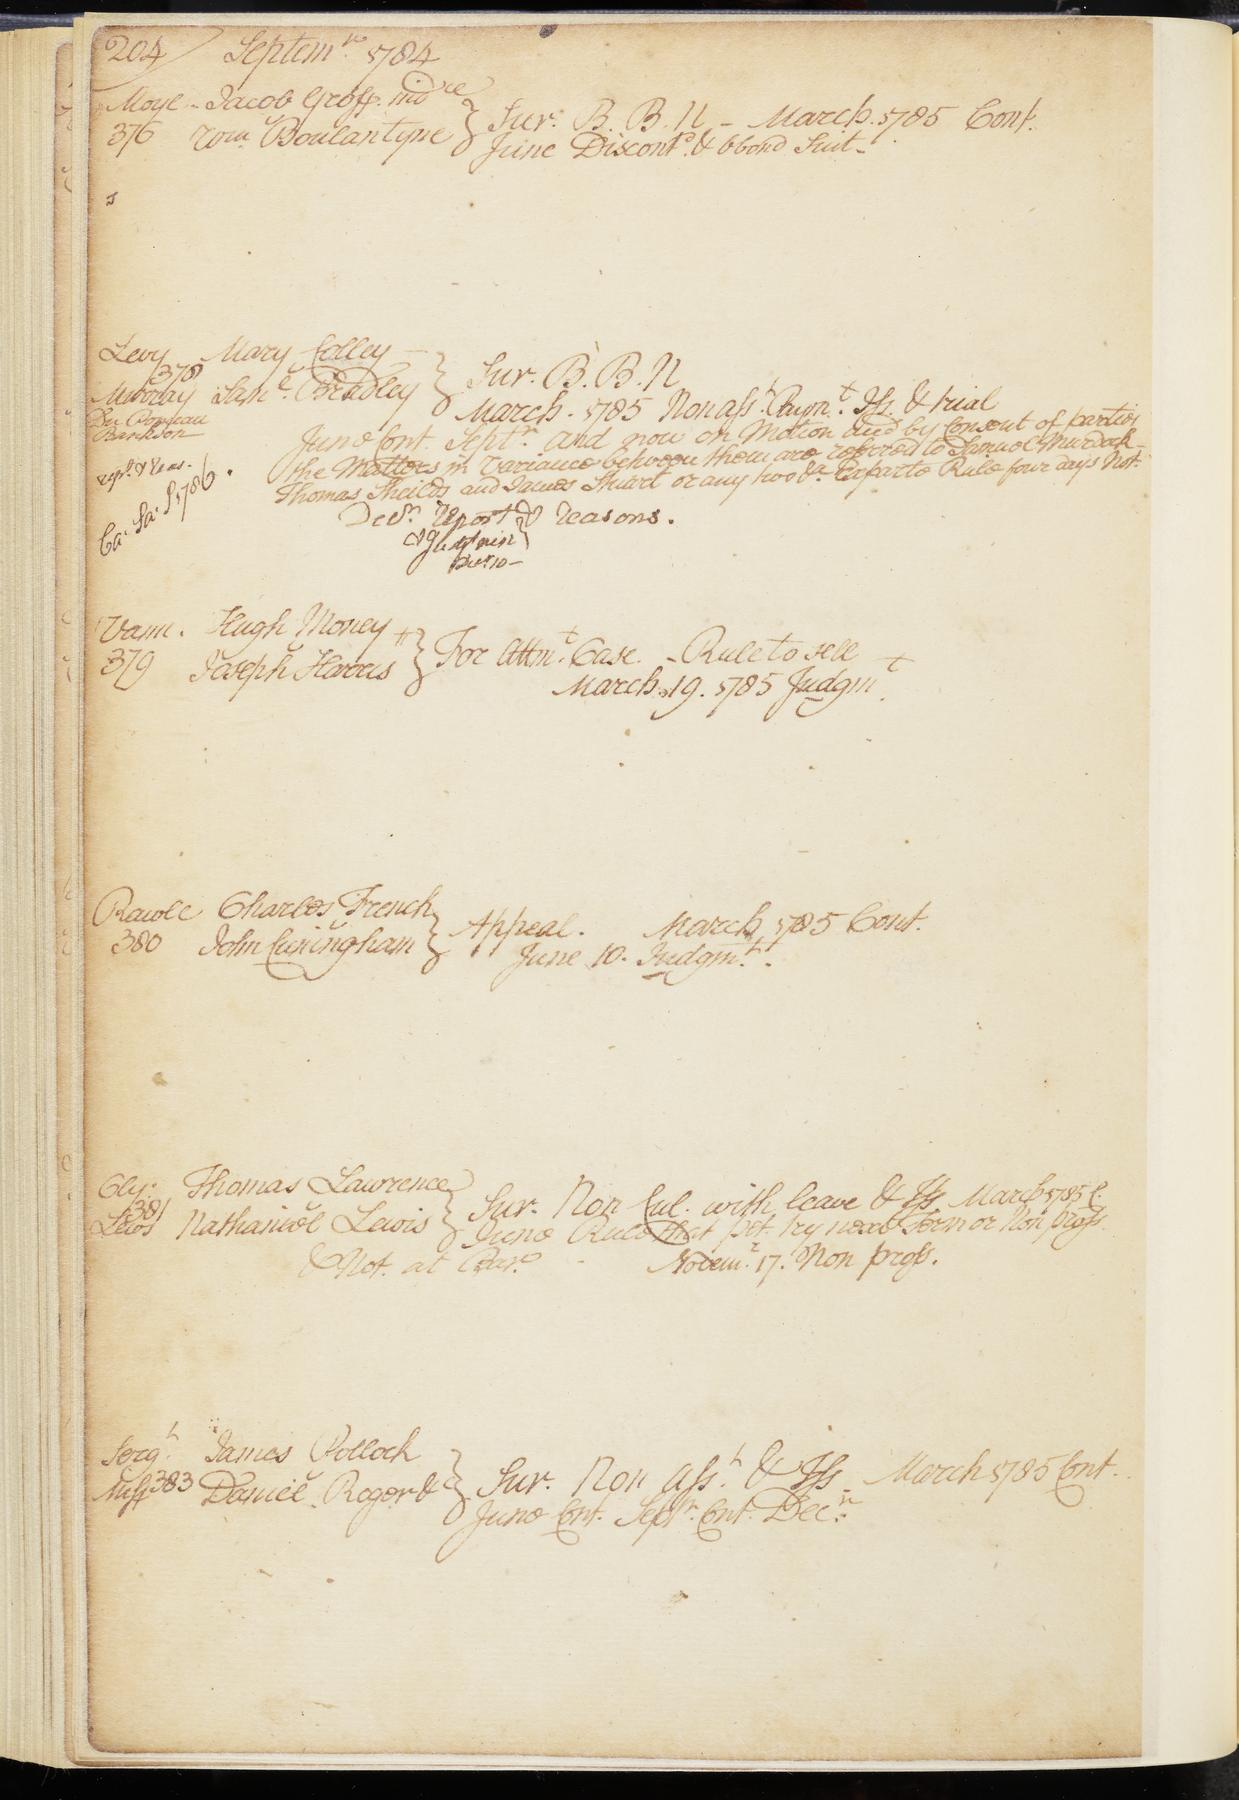 204 Septemr. 1784
Moyl - Jacob Groff. indre
376 Wm Boulantyne } Sur. B. B. N - March. 1785 Cont.
June Discontd. & bbond Suit -
Levy Mary Colley -
378
Murray Saml. Bradley } Sur. B. B. N
March. 1785 Non Asst. Paymt. Iss. & trial
Du Ponceau
Bankson June Cont. Septr. and now on Motion and by Consent of parties
the Matters in Variance between them are referred to Samuel Murdock
rept. & Reas. Thomas Sheilds and James Stuart or any two &a. Exparte Rule four days Not.
Ca. Sa. S 1786. Decr. Report & Reasons.
379
Vann. Hugh Money
Joseph Harris } For Attmt. Case. - Rule to sell
March. 19. 1785 Judgmt.
Rawle Charles French
380 John Cuningham } Appeal. March 1785 Cont.
June 10. Judgmt.
Cly: Thomas Lawrence
381
Lewis Nathaniel Lewis } Sur. Non Cul. with leave & Iss March 1785 C.
June Rule that plt. try next Term or Non pross.
& Not. at Bar. Novemr. 17. Non pross.
Sergt. James Pollock
383 Daniel Roger & } Sur. Non Asst. & Iss. March 1785 Cont.
June Cont. Septr. Cont. Decr.